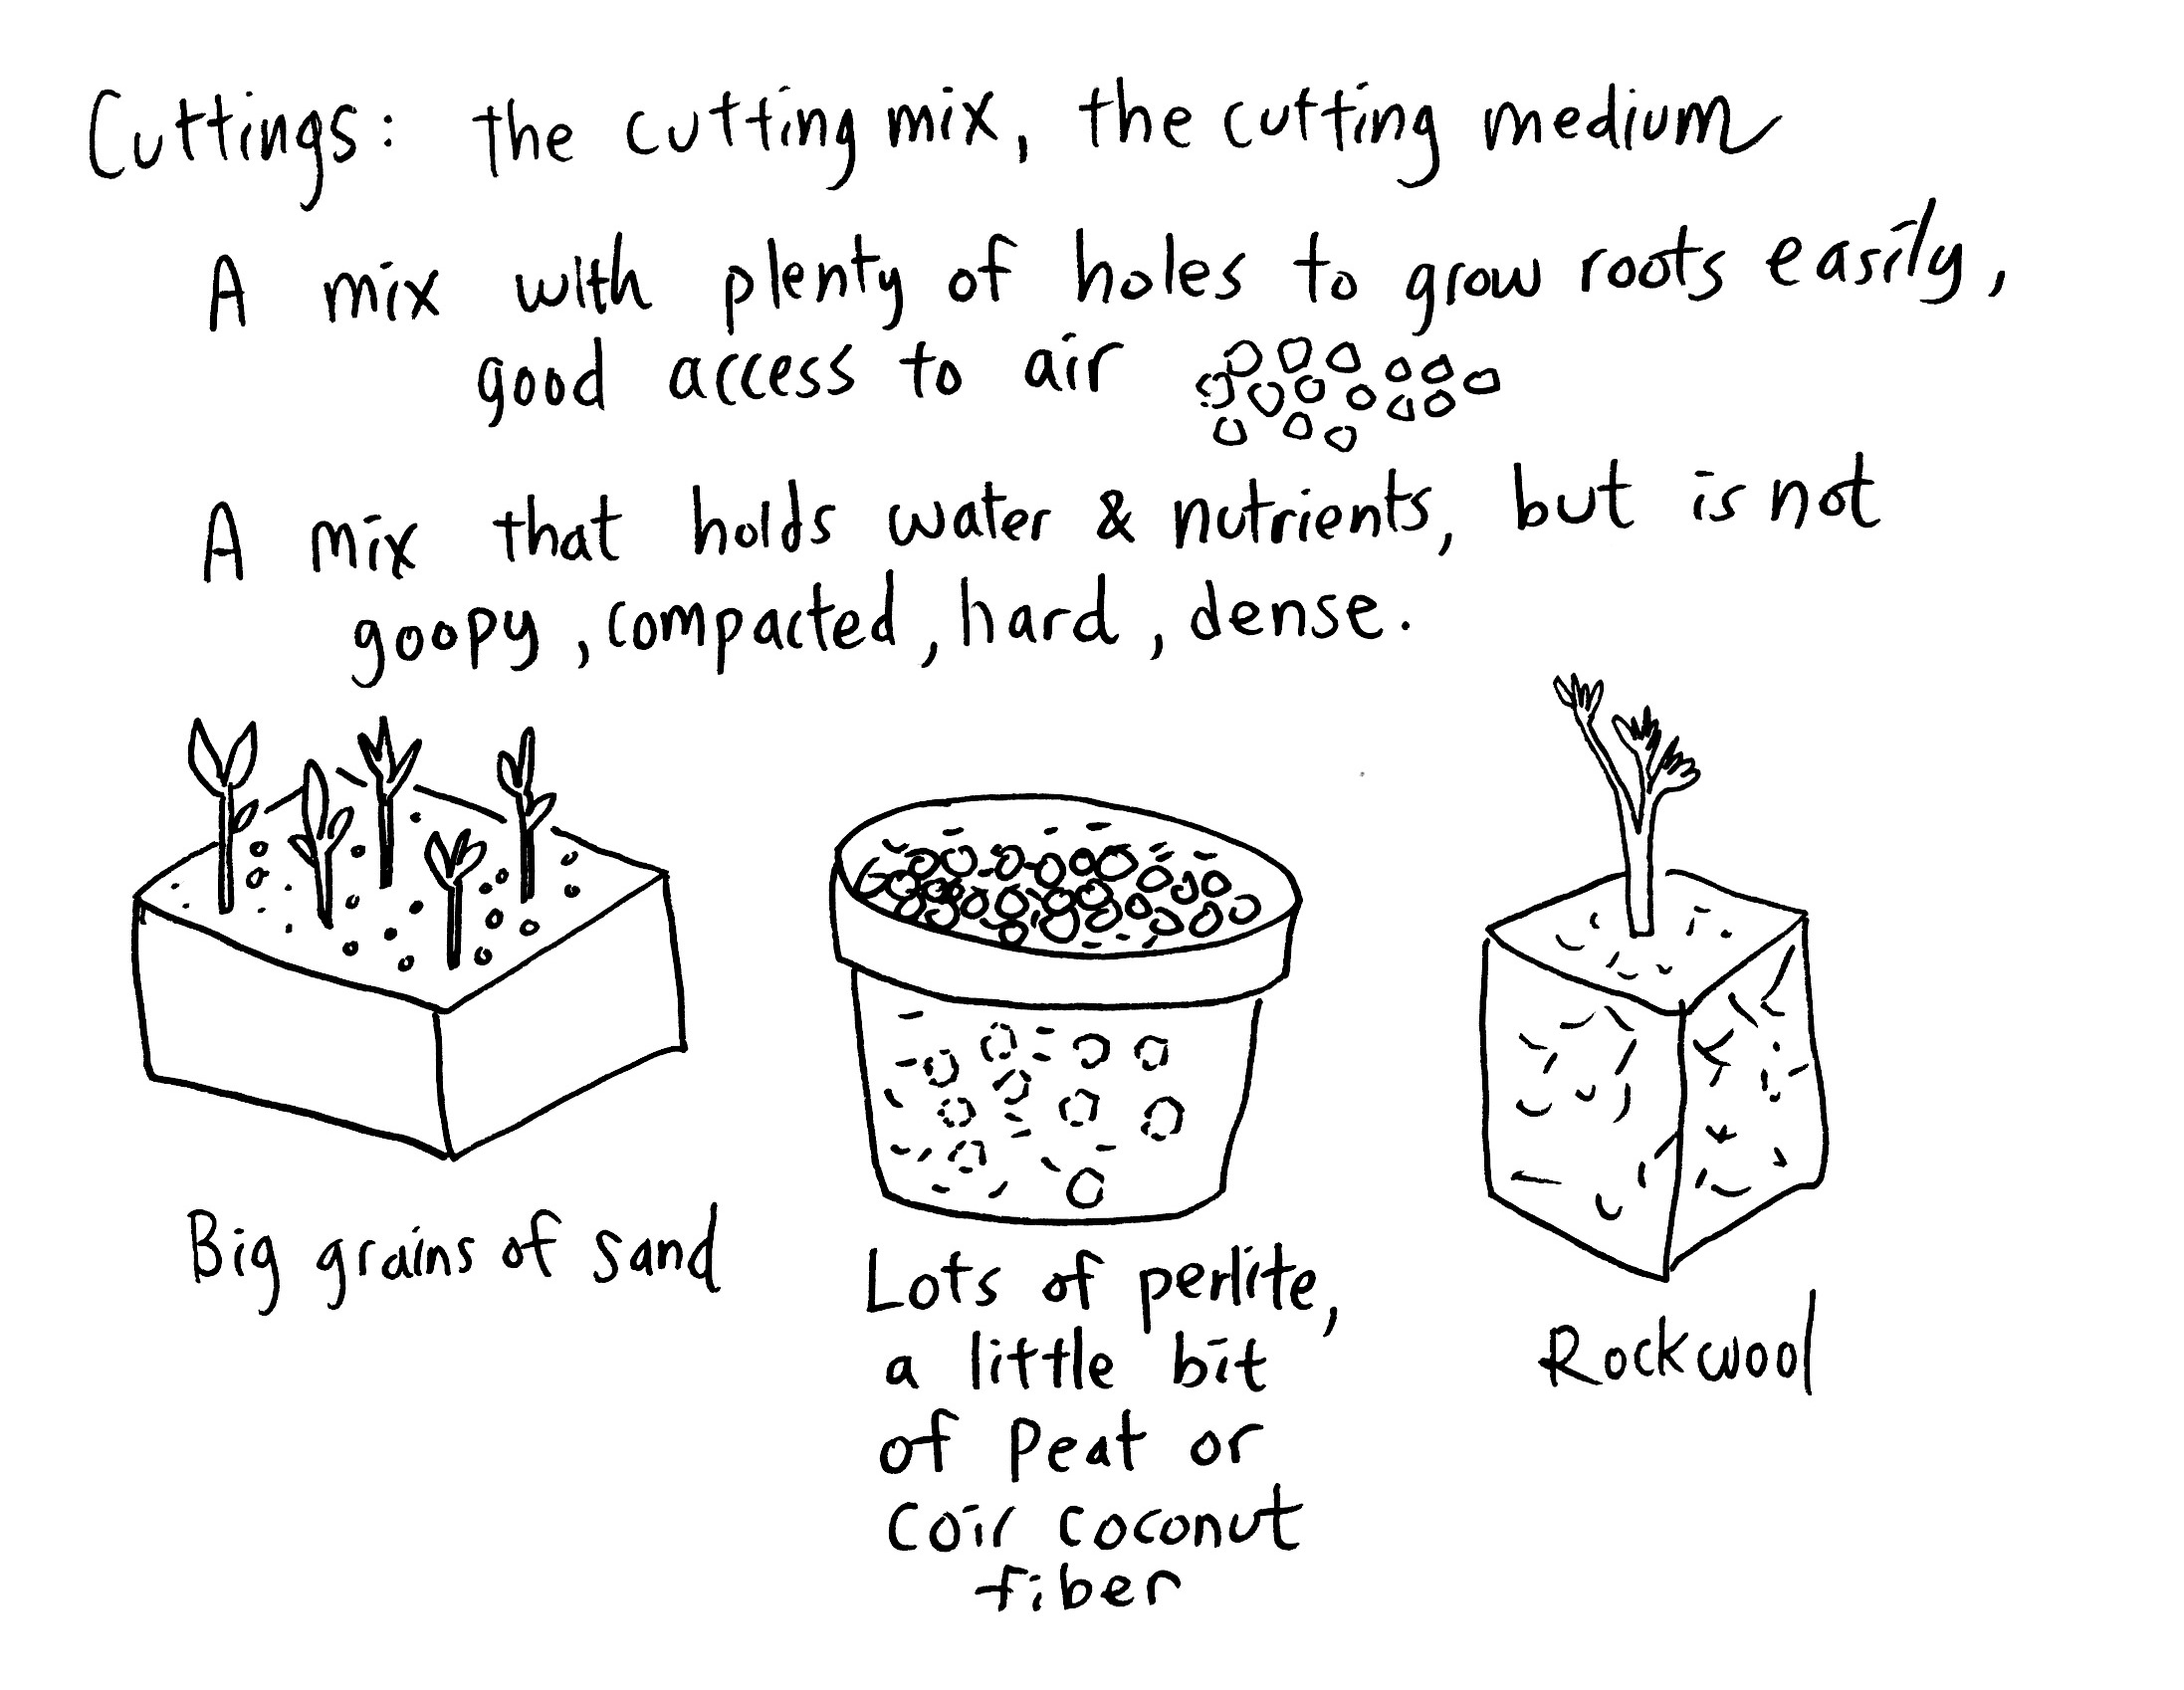 Cuttings: the cutting mix, the cutting medium
A mix with plenty of holes to grow roots easily,
good access to air
A mix that holds water & nutrients, but is not
goopy, compacted, hard, dense.
Big grains of sand
Lots of perlite,
a little bit
of Peat or
Coir coconut
fiber
Rockwool